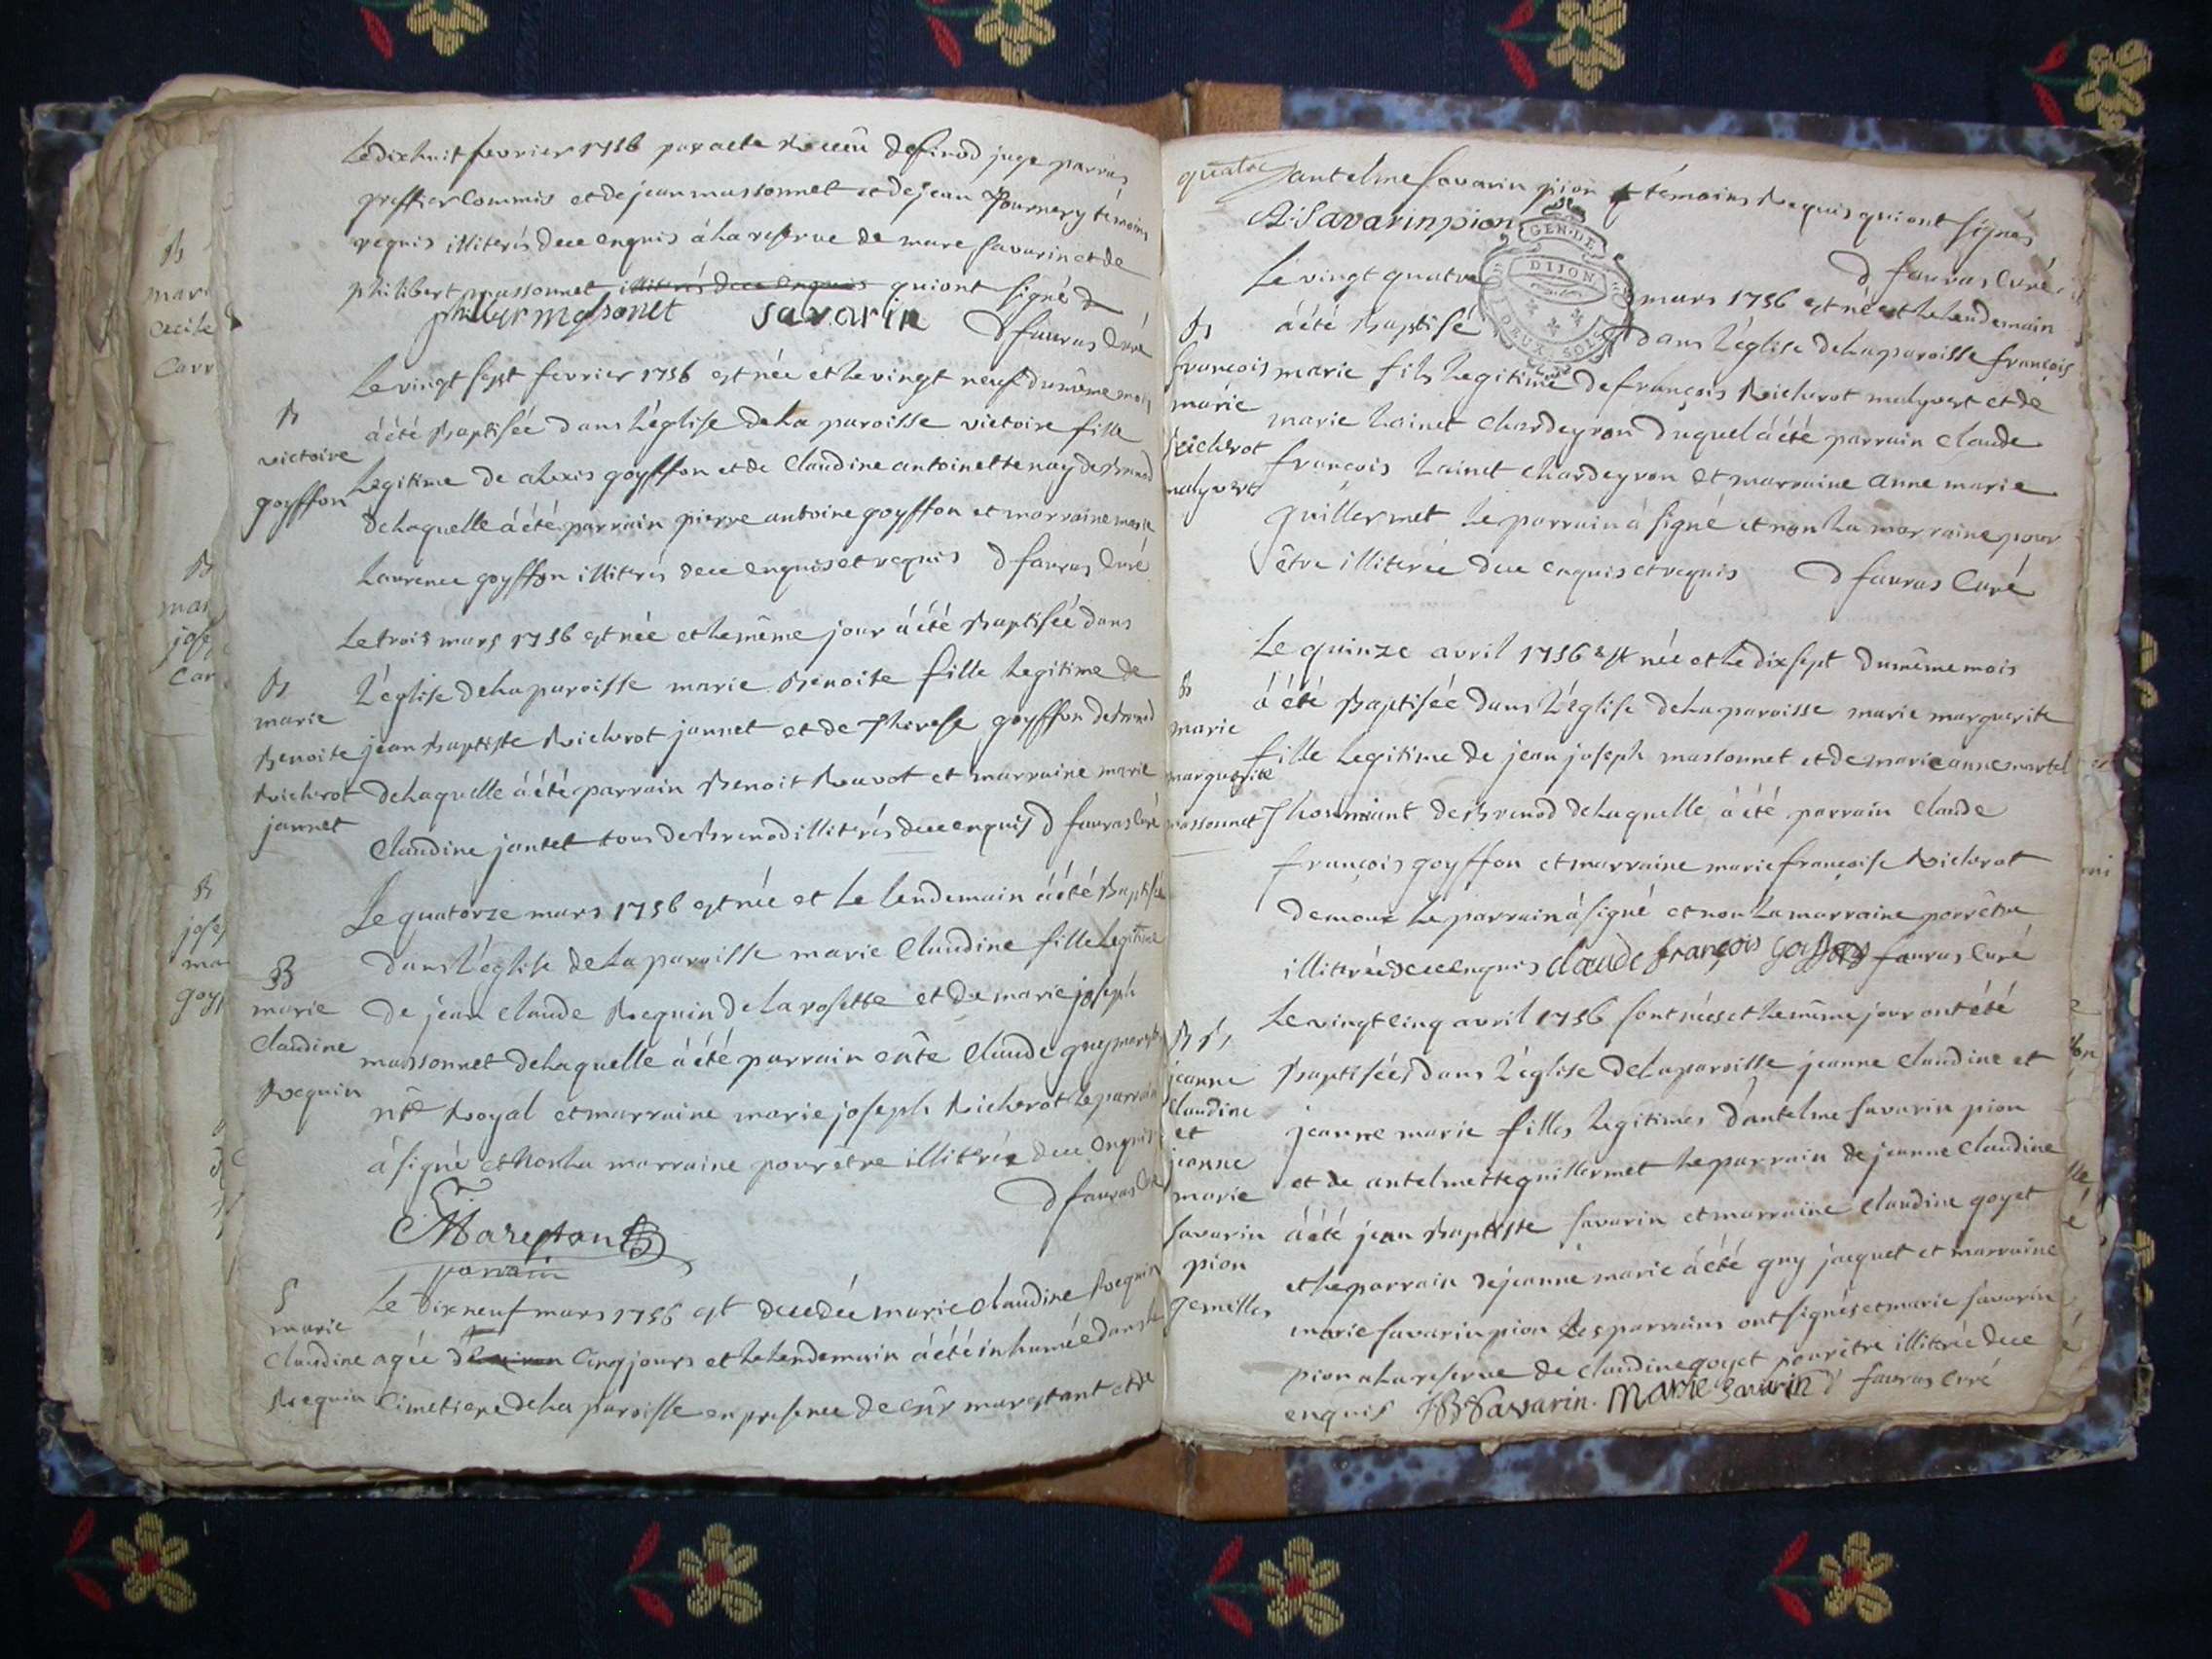 Le dix huit fevrier 1756 par acte Receu de finod juge par nos
greffier Commis et de jean massonnet et de jean Tournery témoins
requis illiterés de ce enquis á la reserve de marc savarin et de
philibert massonnet illiterés de ce enquis qui ont signé
philibert masonet savarin D fauras Curé
B
victoire
goyffon
Le vingt sept fevrier 1756 est née et le vingt neuf du même mois
á été Baptisée dans L'église de La paroisse victoire fille
Legitime de alexis goyffon et de Claudine antoinette nay de Brenod
de Laquelle á été parrain pierre antoine goyffon et marraine marie
Laurence goyffon illiterés de ce enquis et requis D fauras Curé
B
marie
Benoite
Richerot
jannet
Le trois mars 1756 est née et le même jour á été Baptisée dans
L'église de La paroisse marie Benoite fille Legitime de
jean Baptiste Richerot jannet et de Therese goyffon de Brenod
de Laquelle á été parrain Benoit Ravot et marraine marie
Claudine jantet tous de Brenod illiterés de ce enquis D fauras Curé
B
marie
Claudine
Requin
Le quatorze mars 1756 est née et Le Lendemain á été Baptisée
dans L'église de La paroisse marie Claudine fille Legitime
de jean Claude Requin de La rosette et de marie joseph
massonnet de Laquelle á été parrain Claude guy
Royal et marraine marie joseph Richerot Le parrain
á signé et non La marraine pour etre illiterée de ce enquis
D fauras Curé
Marestan
parrain
S
marie
Claudine
Requin
Le dix neuf mars 1756 est decedée marie Claudine Requin
agée de Cinq jours et Le Lendemain á été inhumée dans le
Cimetiere de La paroisse en presence de marestant et de
quatre
antelme savarin pion témoins Requis qui ont signés
A: Savarin pion
D fauras Curé
GEN. DE
DIJON
DEUX. SOLS
B
françois
marie
Richerot
malyvert
Le vingt quatre mars 1756 est né et Le Lendemain
á été Baptisé dans L'église de La paroisse françois
marie fils Legitime de françois Richerot malyvert et de
marie Lainet Chardeyron duquel á été parrain Claude
françois Lainet Chardeyron et marraine anne marie
guillermet Le parrain á signé et non La marraine pour
être illiterée de ce enquis et requis D fauras Curé
B
marie
marguerite
massonnet
Le quinze avril 1756 est née et Le dix sept du même mois
á été Baptisée dans L'église de La paroisse marie marguerite
fille Legitime de jean joseph massonnet et de marie anne martel
de Brenod de Laquelle á été parrain Claude
françois goyffon et marraine marie françoise Richerot
Le parrain á signé et non La marraine pour être
illiterée de ce enquis claude françois goiffon D fauras Curé
B B
jeanne
Claudine
et
jeanne
marie
savarin
pion
gemelles
Le vingt cinq avril 1756 sont nées et Le même jour ont été
Baptisées dans L'église de La paroisse jeanne Claudine et
jeanne marie filles Legitimes d'antelme savarin pion
et de antelmette guillermet Le parrain de jeanne Claudine
á été jean Baptiste savarin et marraine Claudine goyet
et Le parrain de jeanne marie á été guy jacquet et marraine
marie savarin pion Les parrains ont signés et marie savarin
pion a La reserve de Claudine goyet pour être illiterée de ce
enquis JB Savarin. Marie Savarin D fauras Curé